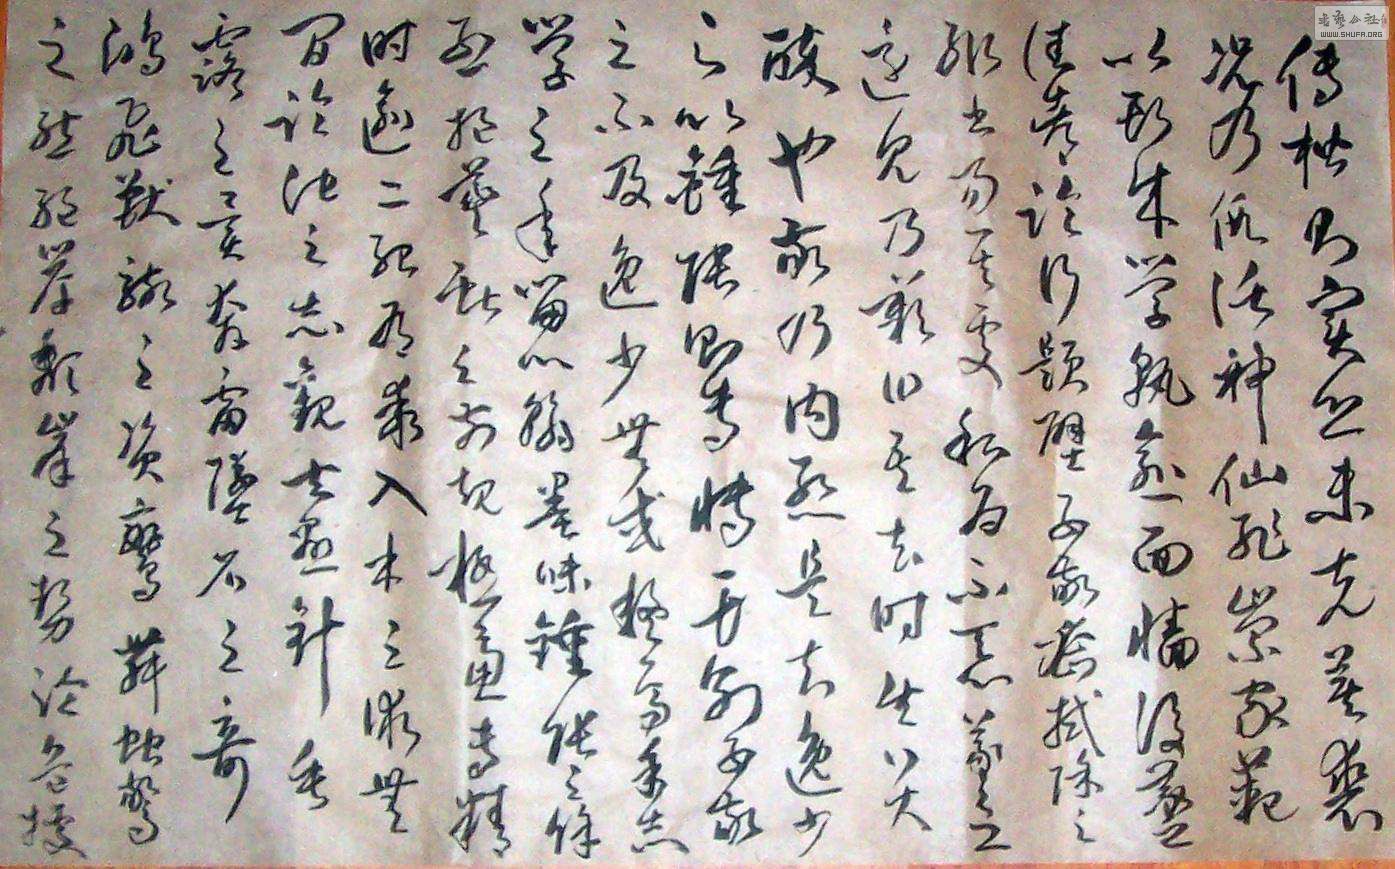 傳楷則實恐未克箕裘
況乃假託神仙恥崇家範
以斯成學孰愈面牆後羲之
往都臨行題壁子敬密拭除之
輒書易其處私為不惡羲之
還見乃歎曰吾去時真大
醉也敬乃內慚是知逸少
之比鍾張則專博斯別子敬
之不及逸少無或疑焉余志
學之年留心翰墨味鍾張之餘
烈挹羲獻之前規極慮專精
時逾二紀有乖入木之術無
間臨池之志觀夫懸針垂
露之異奔雷墜石之奇
鴻飛獸駭之資鸞舞蛇驚
之態絕岸頹峰之勢臨危據
WWW.SHUFA.ORG